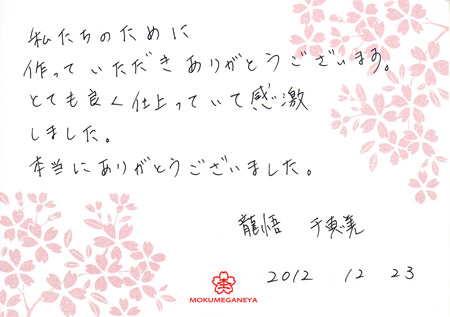 私たちのために
作っていただきありがとうございます。
とても良く仕上っていて感激
しました。
本当にありがとうございました。
龍悟 千恵美
2012 12 23
MOKUMEGANEYA